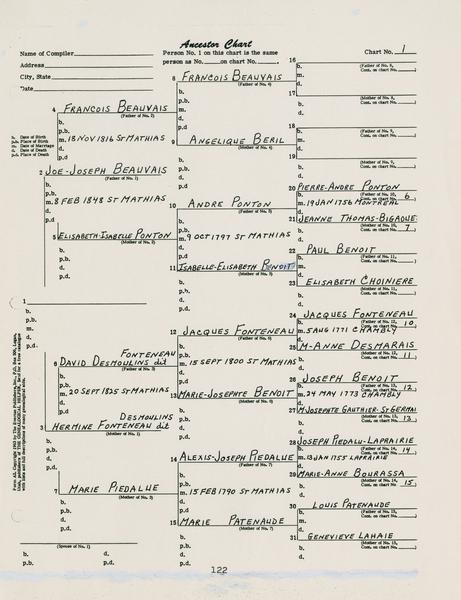 Ancestor Chart
Name of Compiler
Person No. 1 on this chart is the same
Chart No. 1
Address
person as No. on chart No. .
City, State
Date
16
(Father of No. 8,
Cont. on chart No. )
8 FRANCOIS BEAUVAIS
(Father of No. 4)
b.
17
(Mother of No. 8,
Cont. on chart No. )
4 FRANCOIS BEAUVAIS
(Father of No. 2)
b.
p.b.
m. 18 NOV 1816 ST MATHIAS
d.
p.d
b. Date of Birth
p.b. Place of Birth
m. Date of Marriage
d. Date of Death
p.d. Place of Death
18
(Father of No. 9,
Cont. on chart No. )
9 ANGELIQUE BERIL
(Mother of No. 4)
19
(Mother of No. 9,
Cont. on chart No. )
2 JOE-JOSEPH BEAUVAIS
(Father of No. 1)
b.
p.b.
m. 8 FEB 1848 ST MATHIAS
d.
p.d.
20 PIERRE-ANDRE PONTON
(Father of No. 10,
Cont. on chart No. 6)
m. 19 JAN 1756 MONTREAL
10 ANDRE PONTON
(Father of No. 5)
21 JEANNE THOMAS-BIGAOUE
Cont. on chart No. 7)
5 ELISABETH-ISABELLE PONTON
(Mother of No. 2)
m. 9 OCT 1797 ST MATHIAS
22 PAUL BENOIT
(Father of No. 11,
Cont. on chart No. )
11 ISABELLE-ELISABETH BENOIT
(Mother of No. 5)
23 ELISABETH CHOINIERE
(Mother of No. 11,
Cont. on chart No. )
1
b.
p.b.
m.
d.
p.d.
24 JACQUES FONTENEAU
(Father of No. 12,
Cont. on chart No. 10)
m. 5 AUG 1771 CHAMBLY
12 JACQUES FONTENEAU
(Father of No. 6)
25 M-ANNE DESMARAIS
(Mother of No. 12,
Cont. on chart No. 11)
FONTENEAU
6 DAVID DESMOULINS dit
(Father of No. 3)
m. 15 SEPT 1800 ST MATHIAS
26 JOSEPH BENOIT
(Father of No. 13,
Cont. on chart No. 12)
m. 24 MAY 1773 CHAMBLY
m. 20 SEPT 1825 ST MATHIAS
13 MARIE-JOSEPHTE BENOIT
(Mother of No. 6)
27 M JOSEPHTE GAUTHIER-ST GERMAI
Cont. on chart No. 13)
DESMOULINS
3 HERMINE FONTENEAU dit
(Mother of No. 1)
b.
p.b.
d.
p.d.
28 JOSEPH PIEDALU-LAPRAIRIE
(Father of No. 14,
Cont. on chart No. 14)
m. 13 JAN 1755 LAPRAIRIE
14 ALEXIS-JOSEPH PIEDALUE
(Father of No. 7)
29 MARIE-ANNE BOURASSA
(Mother of No. 14,
Cont. on chart No. 15)
7 MARIE PIEDALUE
(Mother of No. 3)
m. 15 FEB 1790 ST MATHIAS
30 LOUIS PATENAUDE
(Father of No. 15,
Cont. on chart No. )
15 MARIE PATENAUDE
(Mother of No. 7)
31 GENEVIEVE LAHAIE
(Mother of No. 15,
Cont. on chart No. )
(Spouse of No. 1)
b. d.
p.b. p.d.
122